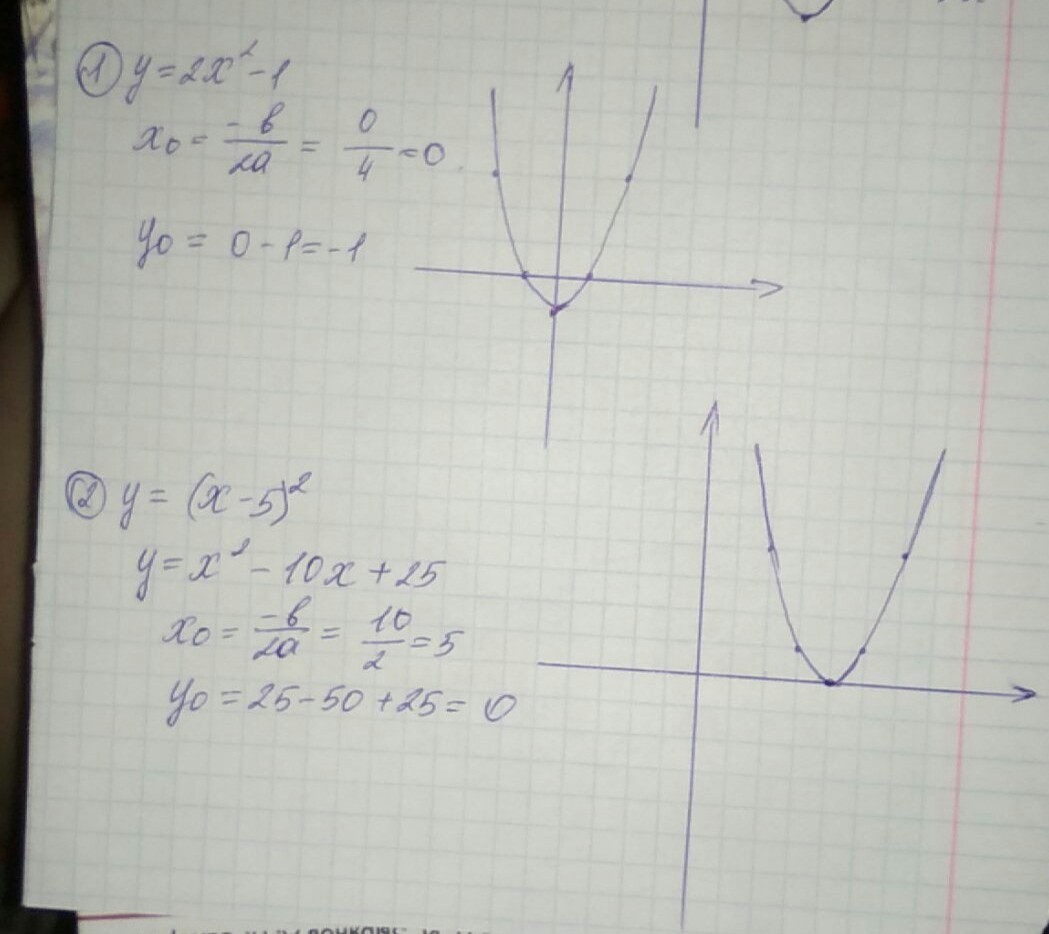 ① y = 2x² - 1
x₀ = -в/2a = 0/4 = 0
y₀ = 0 - 1 = -1
② y = (x - 5)²
y = x² - 10x + 25
x₀ = -в/2a = 10/2 = 5
y₀ = 25 - 50 + 25 = 0